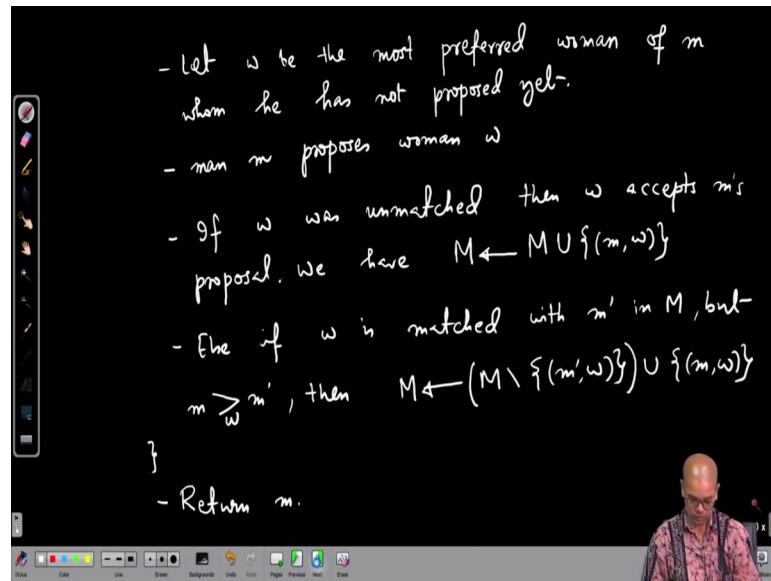 - Let w be the most preferred woman of m
whom he has not proposed yet.
- man m proposes woman w
- If w was unmatched then w accepts m's
proposal. We have M ← M ∪ {(m, w)}
- Else if w is matched with m' in M, but
m >_w m', then M ← (M \ {(m', w)}) ∪ {(m, w)}
}
- Return m.
Stylus Color Line Eraser Backgrounds Undo Redo Pages Previous Next Erase